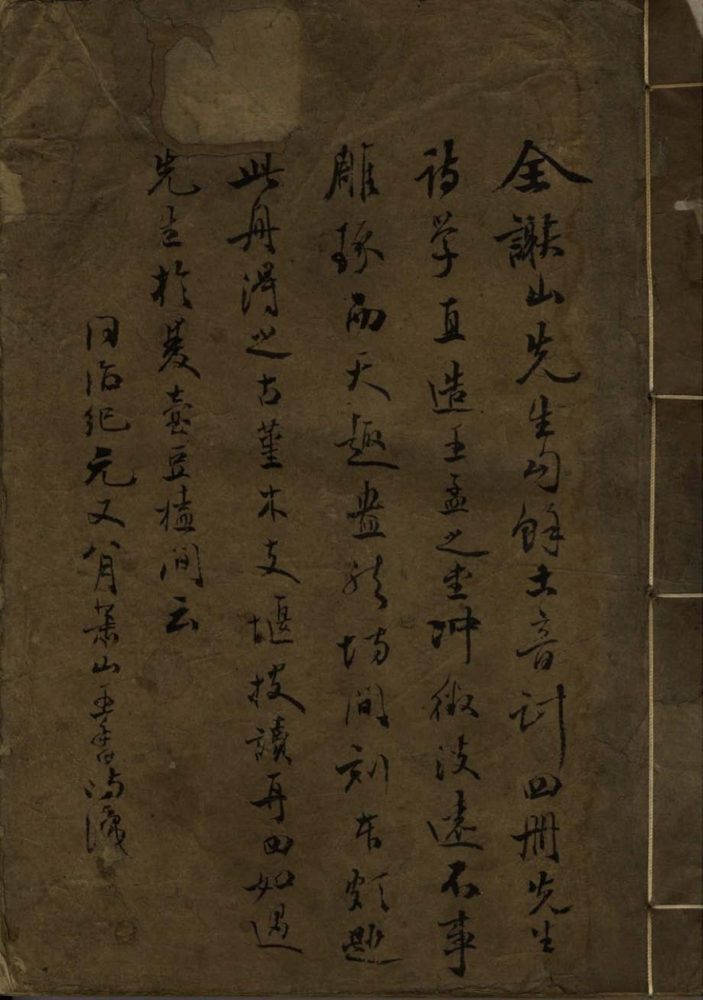 全謝山先生句餘土音計四冊先生
詩學直造王孟之室冲微淡遠不事
雕琢而天趣盎然坊間刻本頗尠
此冊得之古堇木支堰披讀再四如遇
先生於菱臺豆棚間云
同治紀元又八月萧山王